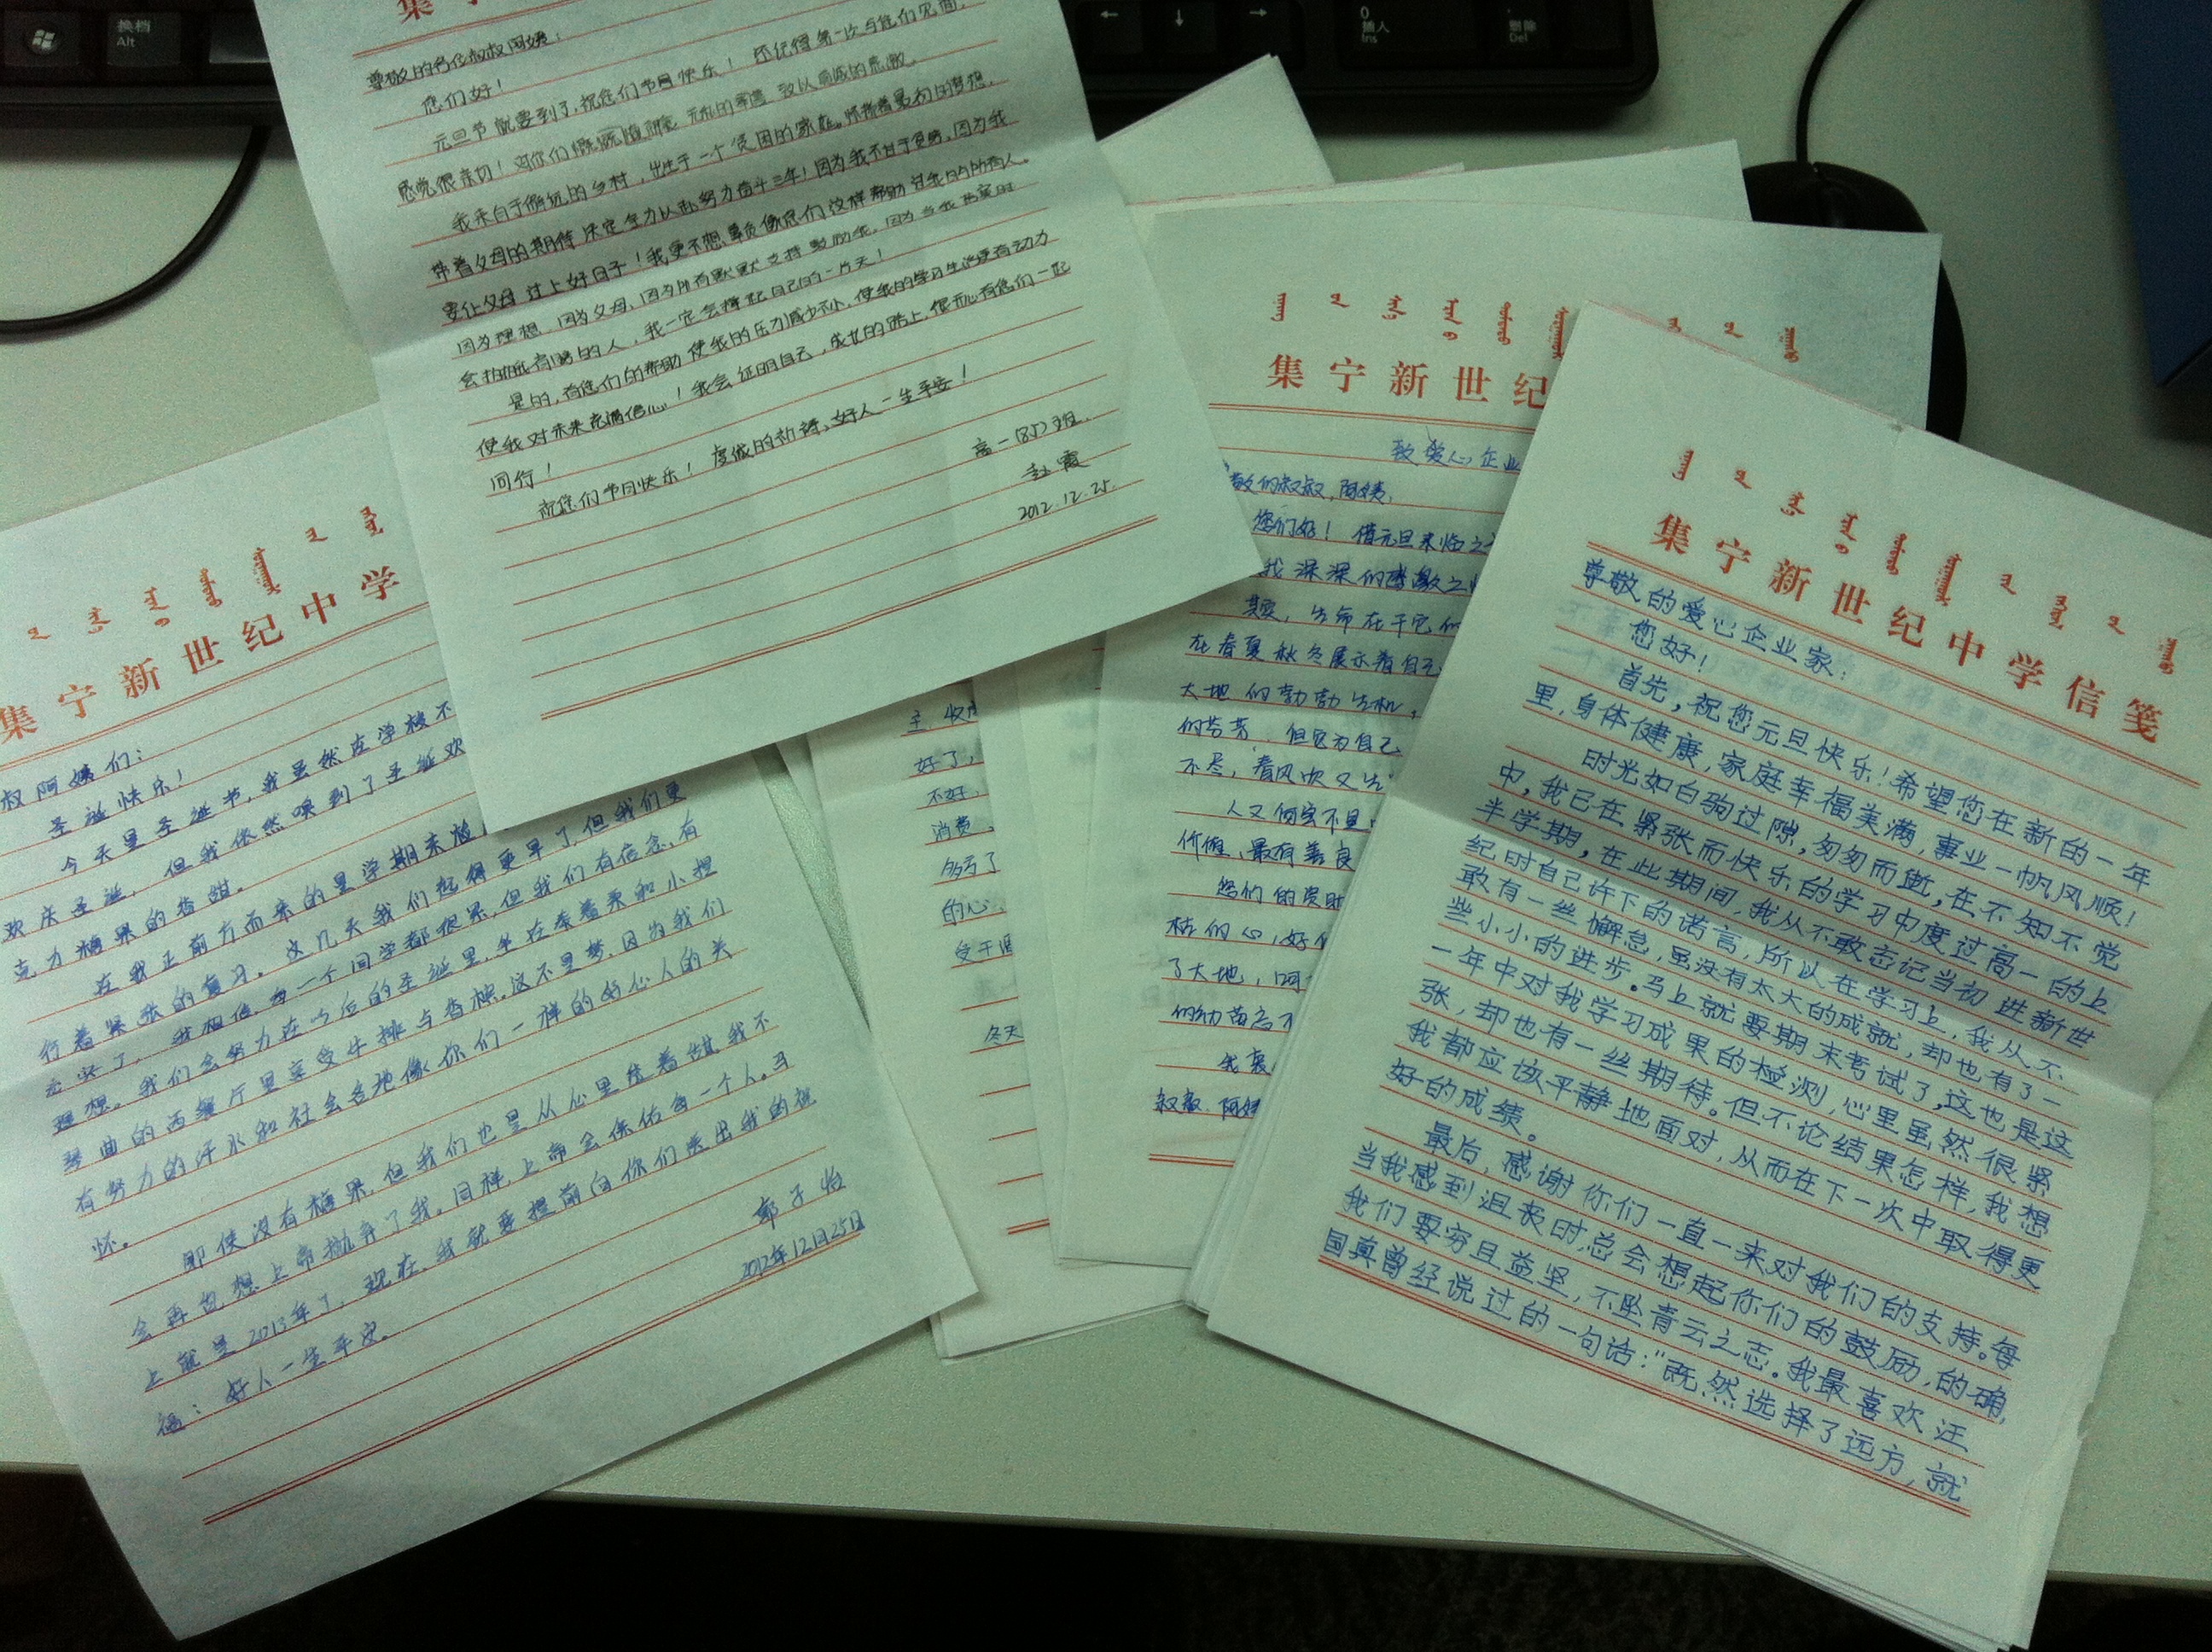 换档
Alt
←
↓
→
0
插入
Ins
.
删除
Del
集宁
尊敬的各位叔叔阿姨:
您们好!
元旦节就要到了,祝您们节日快乐! 还记得第一次与您们见面,
感觉很亲切!对你们慷慨
致以真诚的感激。
我来自于偏远的乡村,出生于一个贫困的家庭。怀揣着最初的梦想,
带着父母的期待决定全力以赴努力奋斗三年!因为我不甘于贫穷,因为我
要让父母过上好日子!我更不想辜负像您们这样帮助过我的所有人。
因为理想,因为父母,因为所有默默支持鼓励我,因为当我
会 的人,我一定会撑起自己的一片天!
是的,有您们的帮助使我的压力减少不小,使我的学习生活更有动力
使我对未来充满信心!我会证明自己,成长的路上,很开心有您们一起
同行!
祝您们节日快乐!虔诚的祈祷,好人一生平安!
高一(85)班.
赵霞
2012.12.25.
集宁新世纪中学
叔阿姨们:
圣诞快乐!
今天是圣诞节,我虽然在学校不
欢庆圣诞,但我依然嗅到了圣诞欢
克力糖果的香甜。
在我正前方而来的是学期末检
行着紧张的复习。这几天我们起得更早了,但我们更
了,我相信每一个同学都很累,但我们有信念,有
理想。我们会努力在以后的圣诞里,坐在奏着泉和小提
琴曲的西餐厅里享受牛排与香槟。这不是梦,因为我们
有努力的汗水和社会各地像你们一样的好心人的关
怀。
即使没有糖果,但我们也是从心里发着甜,我不
会再包想上帝抛弃了我,同样上帝会保佑每一个人。马
上就是2013年了,现在,我就要提前向你们送出我的祝
福:好人一生平安。
郭子怡
2012年12月25日
好了,
不好,
消费,
多亏了
的心,
受干
冬天
集宁新世纪
致爱心企业
敬的叔叔,阿姨,
您们好!借元旦来临之
我深深的感激之
其实,生命在于它的
在春夏秋冬展示着自己
大地的勃勃生机,
的芬芳,但它为自己
不尽,春风吹又生
人又何尝不是
价值,最有善良
您们的资助
枯的心,好
了大地,
的幼苗
我衷
叔叔、阿姨
集宁新世纪中学信笺
尊敬的爱心企业家:
您好!
首先,祝您元旦快乐!希望您在新的一年
里,身体健康,家庭幸福美满,事业一帆风顺!
时光如白驹过隙,匆匆而逝,在不知不觉
中,我已在紧张而快乐的学习中度过高一的上
半学期,在此期间,我从不敢忘记当初进新世
纪时自己许下的诺言,所以在学习上,我从不
敢有一丝懈怠,虽没有太大的成就,却也有了一
些小小的进步。马上就要期末考试了,这也是这
一年中对我学习成果的检测,心里虽然很紧
张,却也有一丝期待。但不论结果怎样,我想
我都应该平静地面对,从而在下一次中取得更
好的成绩。
最后,感谢你们一直一来对我们的支持。每
当我感到沮丧时,总会想起你们的鼓励,的确,
我们要穷且益坚,不坠青云之志。我最喜欢汪
国真曾经说过的一句话:“既然选择了远方,就